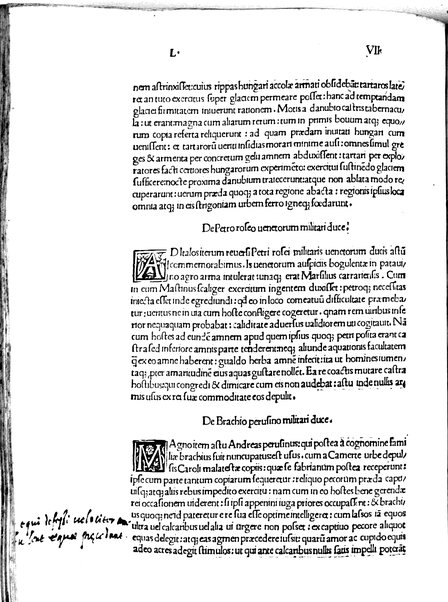 L.
VII
nem astrinxisset: cuius rippas hungari accolæ armati obsidebāt: tartaros late/
re an tuto exercitus super glaciem permeare posset: hanc ad temptandam
glaciei firmitatem inierunt rationem. Motis a danubio castris tabernacu/
la: ut erant: magna cum aliarum rerum: tum in primis bouum atq; equo/
rum copia referta reliquerunt: ad quam prædam inuitati hungari cum
uenissent: et tartarorū ueriti insidias morari minime ausi: omnes simul gre
ges & armenta per concretum gelu amnem abduxissent: tartari per explo/
ratores facti certiores hungarorum experimēto: exercitui sustinēdo glaciem
sufficere nocte proxima danubium traiecerunt: atque non ablata modo re/
cuperarunt: uerum præda quoq; a tota regione abacta: regionis ipsius loca
omnia atq; in eis strigonium urbem ferro igneq; fœdarunt.
De Petro roseo uenetorum militari duce.
AD Italos iterum reuersi Petri rosei militaris uenetorum ducis astū
commemorabimus. Is uenetorum auspiciis bogulentæ in pataui/
no agro arma intulerat tunaq; erat Marsilius carrariensis. Cum
in eum Mastinus scaliger exercitum ingentem duxisset: petroq; necessitas
iniecta esset inde egrediundi: qđ eo in loco comeatuū difficultate præmeba/
tur: ueritus ne in uia cum hoste confligere cogeretur. quam rem uiribus infe
rior nequaquam probabat: caliditate aduersus ualidiorem uti cogitauit. Nā
cum hostes ad eundē amnem apud quem ipsius quoq; petri posita erant ca
stra sed inferiore amnis parte tenderent: neq; aliunde aquationis facultatem
q̄ ex eo amne haberent: gualdo herba amnē infecit: ita ut homines iumen/
taq; pter amaritudinē eius aquas gustare nollēt. Ea re coactis mutare castra
hostibus: qui congredi & dimicare cum eis non audebat: astu inde nullis ar/
mis usus ex re sua commoditate eos depulit.
De Brachio perusino militari duce.
MAgno item astu Andreas perusinus: qui postea a cognomine fami
liæ brachius fuit nuncupatus est usus. cum a Camerte urbe depul/
sis Caroli malatestæ copiis: quæ se fabrianum postea receperunt:
ipse cum parte tantum copiarum sequeretur: reliquo pecorum præda capti/
uisq; atq; aliis rebus impedito exercitu: nam cum in eo hostes bene gerendæ
rei occasionem uiderent: si ipsi appenini iuga priores occupassent: & brachi/
us quoq; necd pateretur e re sua esse optime intelligeret: cum lassos iā equos
ultra uel calcaribus uel alia ui urgere non posset: ex captiuo pecore aliquot
equas delegit: atq; eas agmen præcedere iussit: quarū amor ac cupido equis
adeo acres adegit stimulos: ut qui ante calcaribus nullis satis impelli poterāt